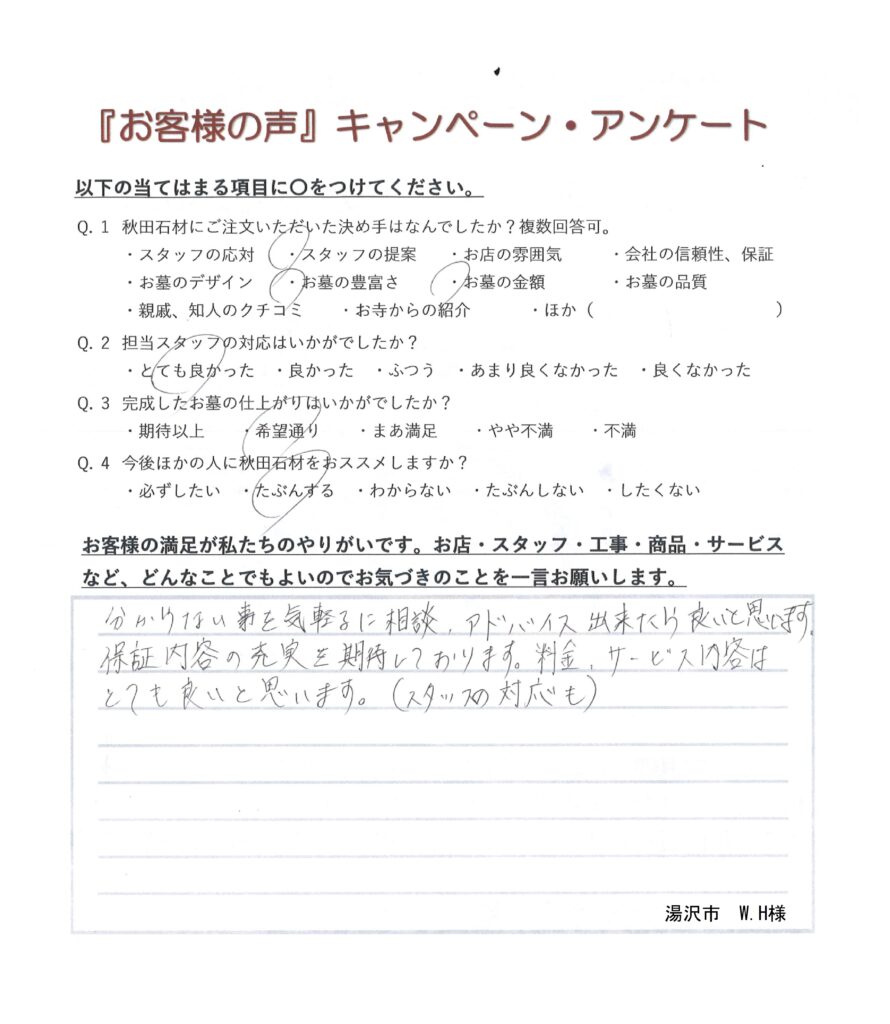 『お客様の声』キャンペーン・アンケート
以下の当てはまる項目に〇をつけてください。
Q. 1 秋田石材にご注文いただいた決め手はなんでしたか？複数回答可。
・スタッフの応対 ・スタッフの提案 ・お店の雰囲気 ・会社の信頼性、保証
・お墓のデザイン ・お墓の豊富さ ・お墓の金額 ・お墓の品質
・親戚、知人のクチコミ ・お寺からの紹介 ・ほか（ ）
Q. 2 担当スタッフの対応はいかがでしたか？
・とても良かった ・良かった ・ふつう ・あまり良くなかった ・良くなかった
Q. 3 完成したお墓の仕上がりはいかがでしたか？
・期待以上 ・希望通り ・まあ満足 ・やや不満 ・不満
Q. 4 今後ほかの人に秋田石材をおススメしますか？
・必ずしたい ・たぶんする ・わからない ・たぶんしない ・したくない
お客様の満足が私たちのやりがいです。お店・スタッフ・工事・商品・サービス
など、どんなことでもよいのでお気づきのことを一言お願いします。
分からない事を気軽るに相談、アドバイス出来たら良いと思います。
保証内容の充実を期待しております。料金、サービス内容は
とても良いと思います。（スタッフの対応も）
湯沢市 W.H様